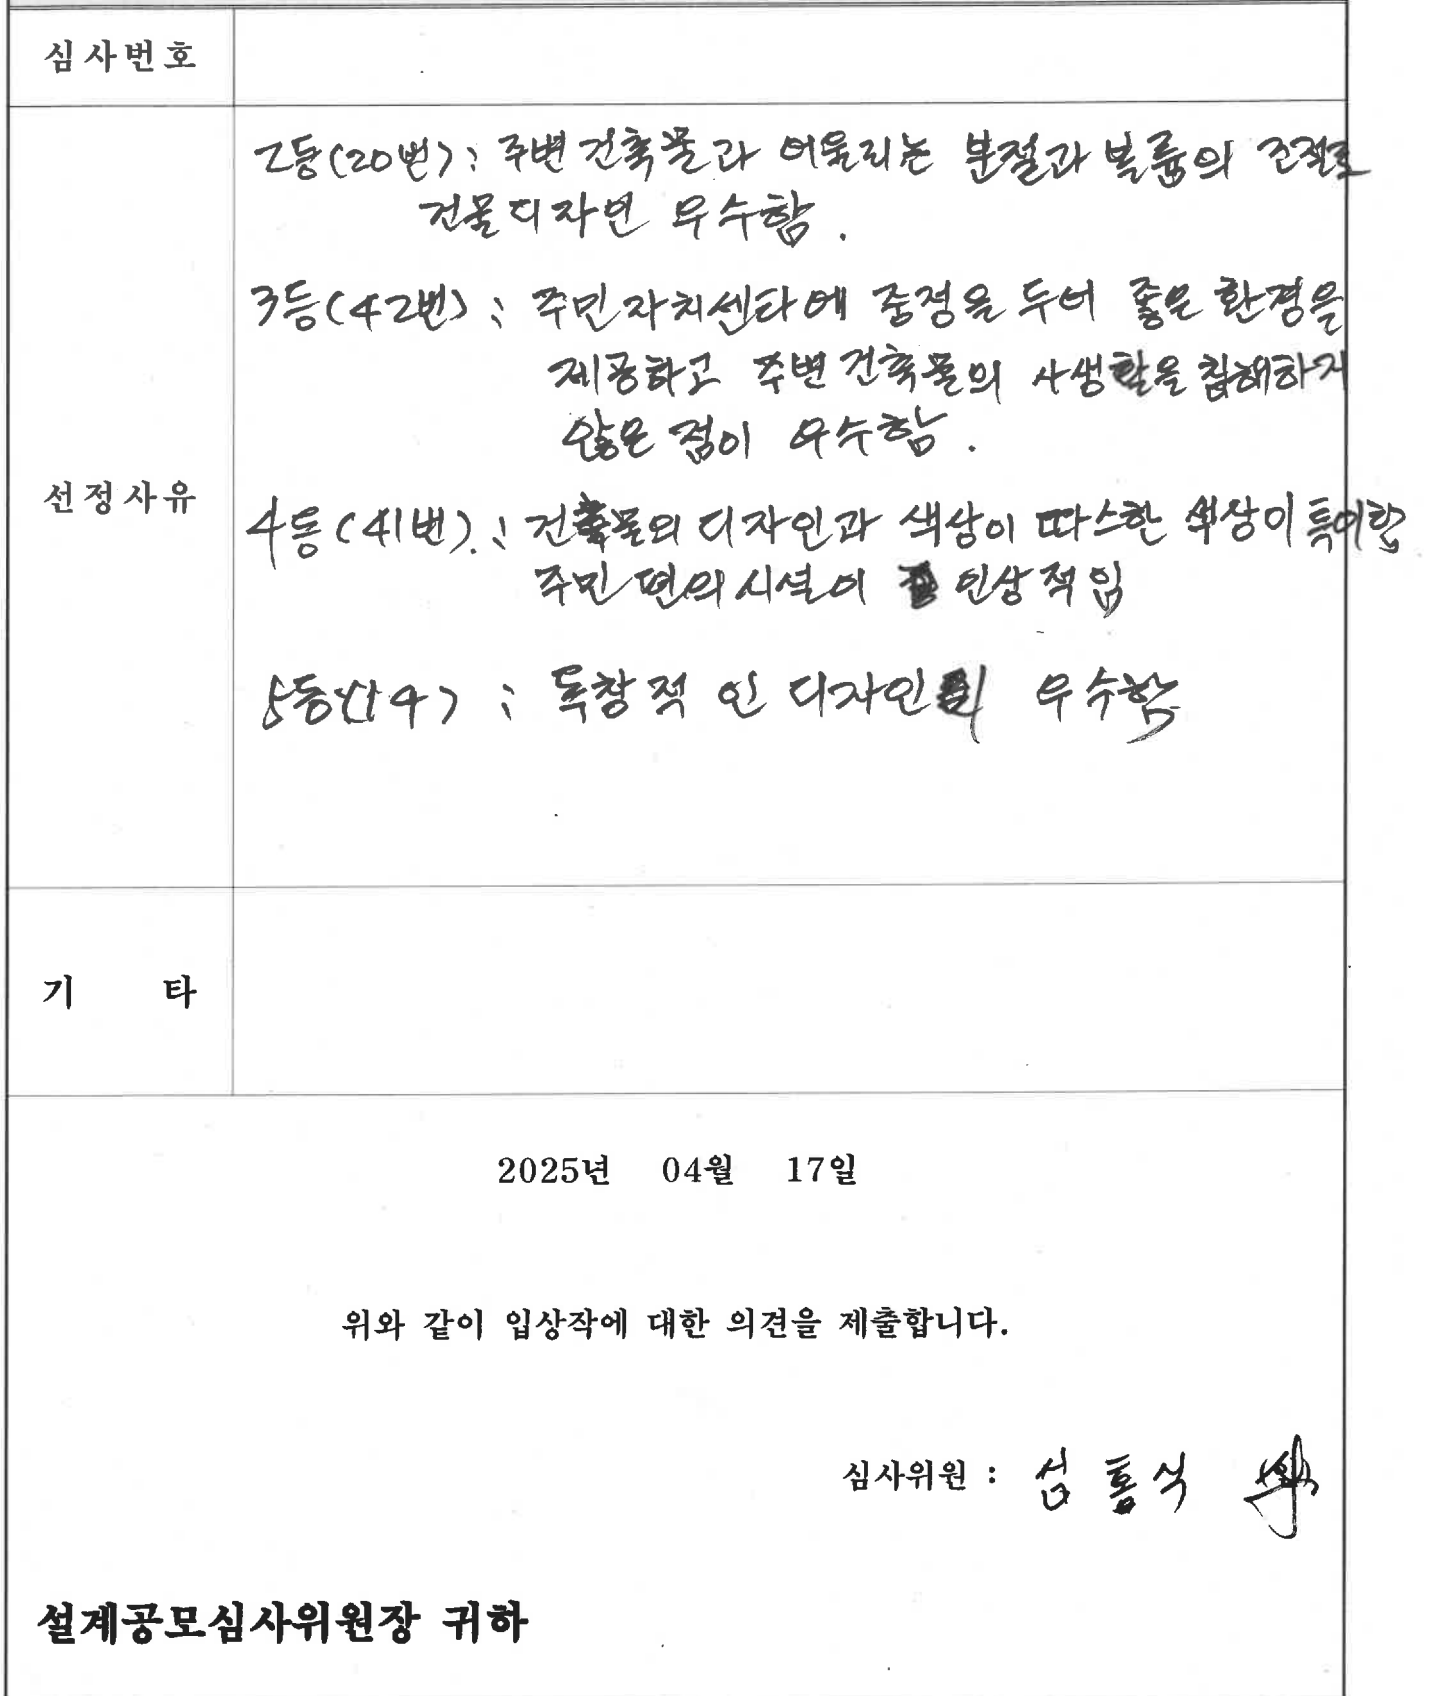 심사번호
2등(20번) : 주변건축물과 어울리는 분절과 볼륨의 조절로
건물디자인 우수함.
3등(42번) : 주민자치센타에 중정을 두어 좋은 환경을
제공하고 주변건축물의 사생활을 침해하지
않은 점이 우수함.
선정사유
4등(41번). : 건축물의 디자인과 색상이 따스한 색상이 특이함
주민편의시설이 인상적임
5등(14) : 독창적인 디자인이 우수함
기 타
2025년 04월 17일
위와 같이 입상작에 대한 의견을 제출합니다.
심사위원 : 심홍식
설계공모심사위원장 귀하